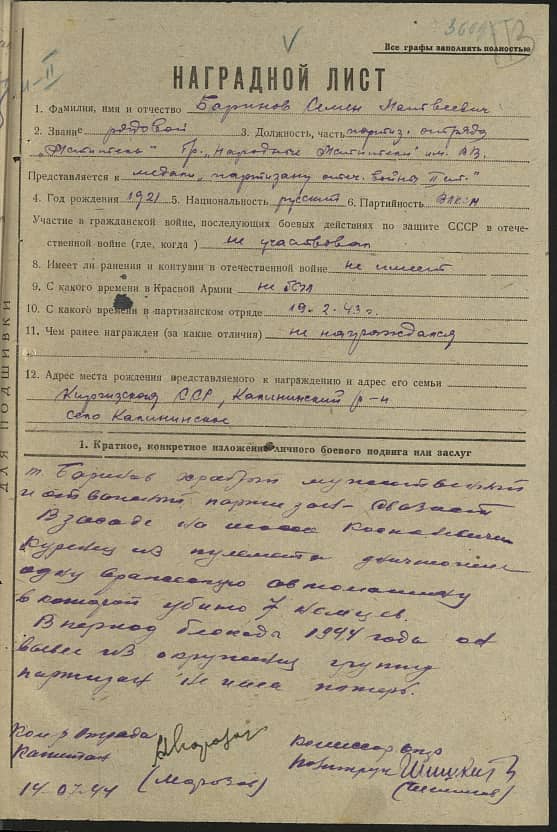 Все графы заполнять полностью
НАГРАДНОЙ ЛИСТ
1. Фамилия, имя и отчество Баринов Семен Матвеевич
2. Звание рядовой 3. Должность, часть партиз. отряда
„Мститель" бр. „Народные Мстители" им. В.В.
Представляется к медали „партизану отеч. войны II ст."
4. Год рождения 1921 5. Национальность русский 6. Партийность ВЛКСМ
Участие в гражданской войне, последующих боевых действиях по защите СССР в отече-
ственной войне (где, когда) не участвовал
8. Имеет ли ранения и контузии в отечественной войне не имеет
9. С какого времени в Красной Армии не был
10. С какого времени в партизанском отряде 19-2-43 г.
11. Чем ранее награжден (за какие отличия) не награждался
12. Адрес места рождения представляемого к награждению и адрес его семьи
Киргизская ССР, Калининский р-н
село Калининское
ДЛЯ ПОДШИВКИ
1. Краткое, конкретное изложение личного боевого подвига или заслуг
т. Баринов храбрый мужественный
и отважный партизан
В засаде на шоссе
Куренец из пулемета уничтожил
одну вражескую автомашину
в которой убито 7 немцев.
В период блокады 1944 года он
вывел из окружения группу
партизан не имея потерь.
Ком-р отряда
Капитан (Морозов)
комиссар отр
политрук Шишкин
14-07-44